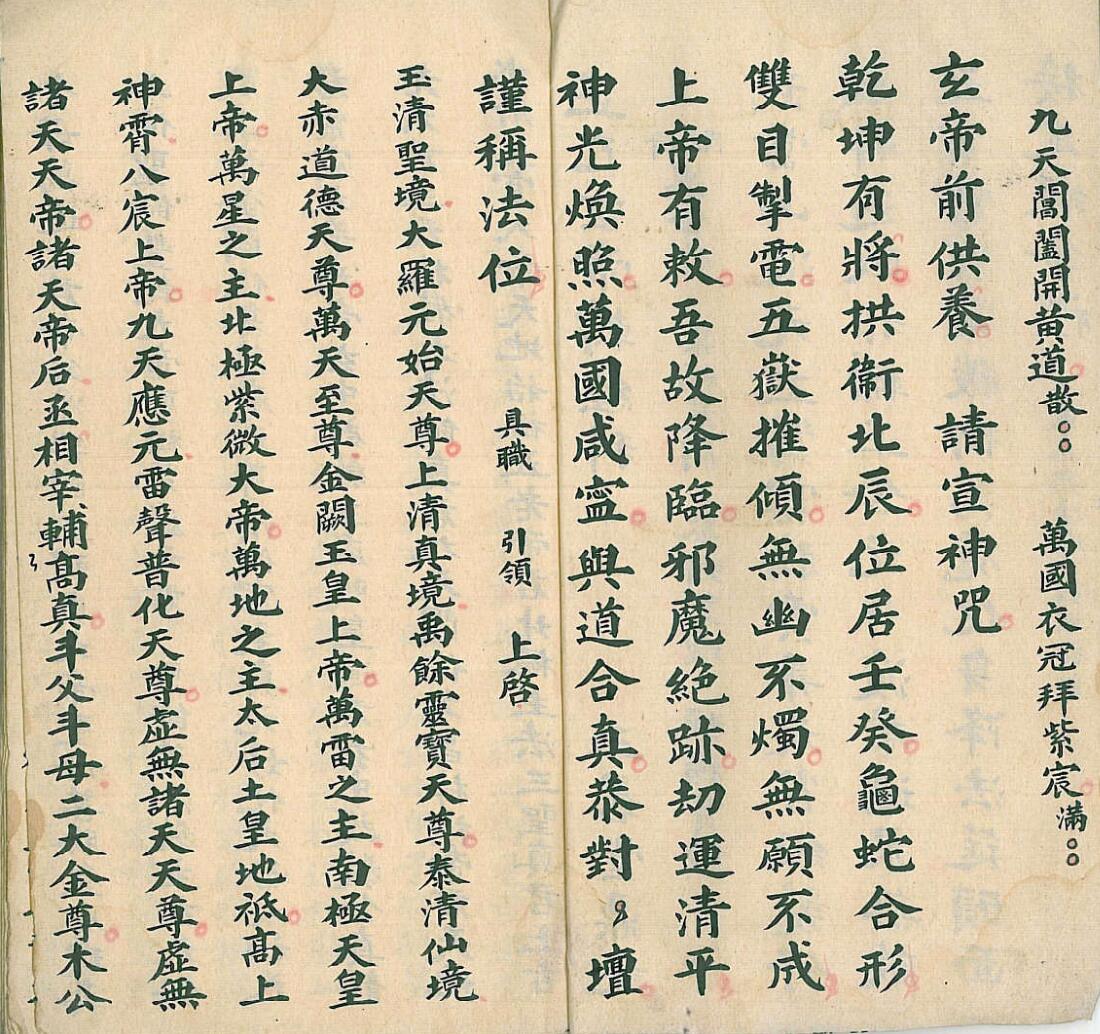 九天閶闔開黃道散 萬國衣冠拜紫宸滿
玄帝前供養 請宣神咒
乾坤有將拱衞北辰位居壬癸龜蛇合形
雙目掣電五嶽摧傾無幽不燭無願不成
上帝有敕吾故降臨邪魔絶跡劫運清平
神光煥照萬國咸寍與道合真恭對 壇
謹稱法位 具職 引領 上啓
玉清聖境大羅元始天尊上清真境禹餘靈寶天尊泰清仙境
大赤道德天尊萬天至尊金闕玉皇上帝萬雷之主南極天皇
上帝萬星之主北極紫微大帝萬地之主太后土皇地祇髙上
神霄八宸上帝九天應元雷聲普化天尊虛無諸天天尊虛無
諸天天帝諸天帝后丞相宰輔髙真斗父斗母二大金尊木公